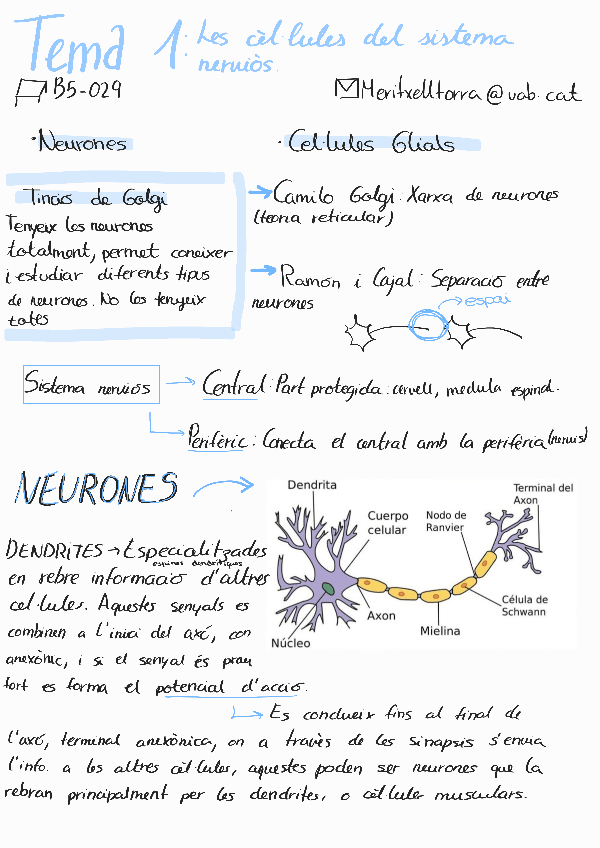 Tema 1: Les cèl·lules del sistema
nerviós.
B5-029
Meritxelltorra@uab.cat
· Neurones
· Cel·lules Glials
Tinció de Golgi
Tenyeix les neurones
totalment, permet coneixer
i estudiar diferents tipus
de neurones. No les tenyeix
totes
→ Camilo Golgi: Xarxa de neurones
(teoria reticular)
→ Ramón i Cajal: Separació entre
neurones
→ espai
Sistema nerviós → Central: Part protegida: cervell, medula espinal.
Perifèric: Conecta el central amb la perifèria (nervis)
NEURONES →
Dendrita
Cuerpo
celular
Nodo de
Ranvier
Terminal del
Axon
Axon
Mielina
Célula de
Schwann
Núcleo
DENDRITES → Especialitzades
espines dendrítiques
en rebre informació d'altres
cel·lules. Aquestes senyals es
combinen a l'inici del axó, con
anexònic, i si el senyal és prou
fort es forma el potencial d'acció.
→ Es condueix fins al final de
l'axó, terminal anexònica, on a través de les sinapsis s'envia
l'info. a les altres cèl·lules, aquestes poden ser neurones que la
rebran principalment per les dendrites, o cèl·lules musculars.